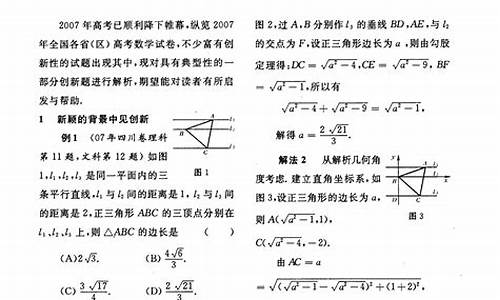 2007年高考已顺利降下帷幕,纵览2007
年全国各省(区)高考数学试卷,不少富有创
新性的试题出现其中,现对具有典型性的一
部分创新题进行解析,期望能对读者有所启
发与帮助.
1 新颖的背景中见创新
例1 (07年四川卷理科
第11题,文科第12题)如图
1,l₁、l₂、l₃是同一平面内的三
条平行直线,l₁与l₂间的距离是1,l₂与l₃间
的距离是2,正三角形ABC的三顶点分别在
l₁、l₂、l₃上,则△ABC的边长是 ( )
(A)2√3. (B) 4√6/3.
(C) 3√17/4. (D) 2√21/3.
A
B
C
l₁
l₂
l₃
图1
图2,过A、B分别作l₃的垂线BD、AE,与l₂
的交点为F,设正三角形边长为a,则由勾股
定理得:DC=√(a²-4),CE=√(a²-9),BF
=√(a²-1),所以有
√(a²-4)+√(a²-9)=√(a²-1),
解得a=2√21/3.
解法2 从解析几何角
度考虑.建立直角坐标系,如
图3,设正三角形的边长为a,
则A(√(a²-1),1),
C(√(a²-4),-2).
由AC=a
=√((√(a²-1)-√(a²-4))²+(1+2)²),
A
B
C
图3